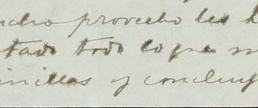 ucho provecho les h
tado todo lo que m
anillas y concluy